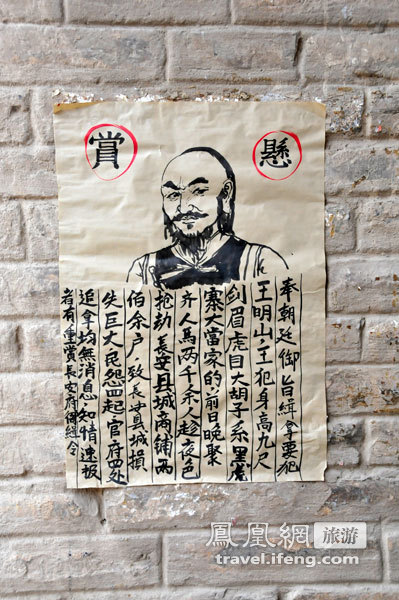 懸賞
奉朝廷御旨緝拿要犯
王明山,主犯身高九尺
剑眉虎目大胡子系黑虎
寨大當家的,前日晚聚
齐人馬两千余人趁夜色
抢劫長安县城商铺两
佰余户,致長安县城損
失巨大民怨四起官府四处
追拿均無消息,知情速报
者有重賞長安府傳緝令
鳳凰網 旅游
travel.ifeng.com